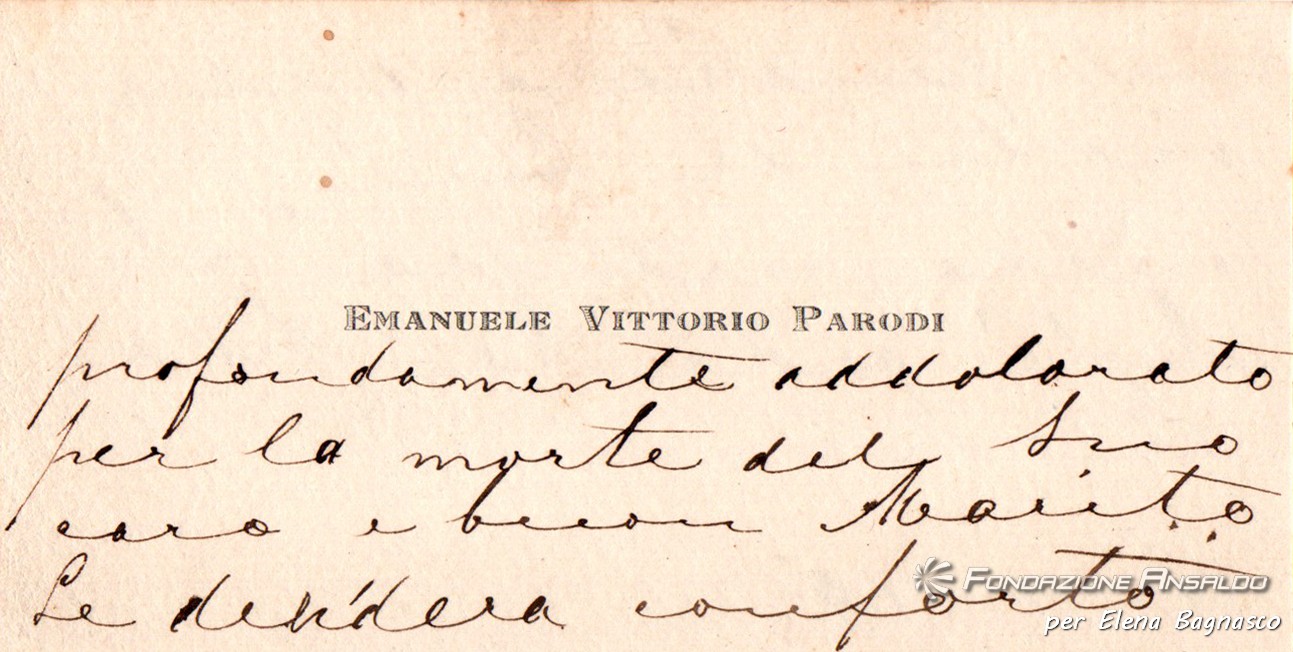 EMANUELE VITTORIO PARODI
profondamente addolorato
per la morte del Suo
caro e buon Marito
Le desidera conforto
FONDAZIONE ANSALDO
per Elena Bagnasco